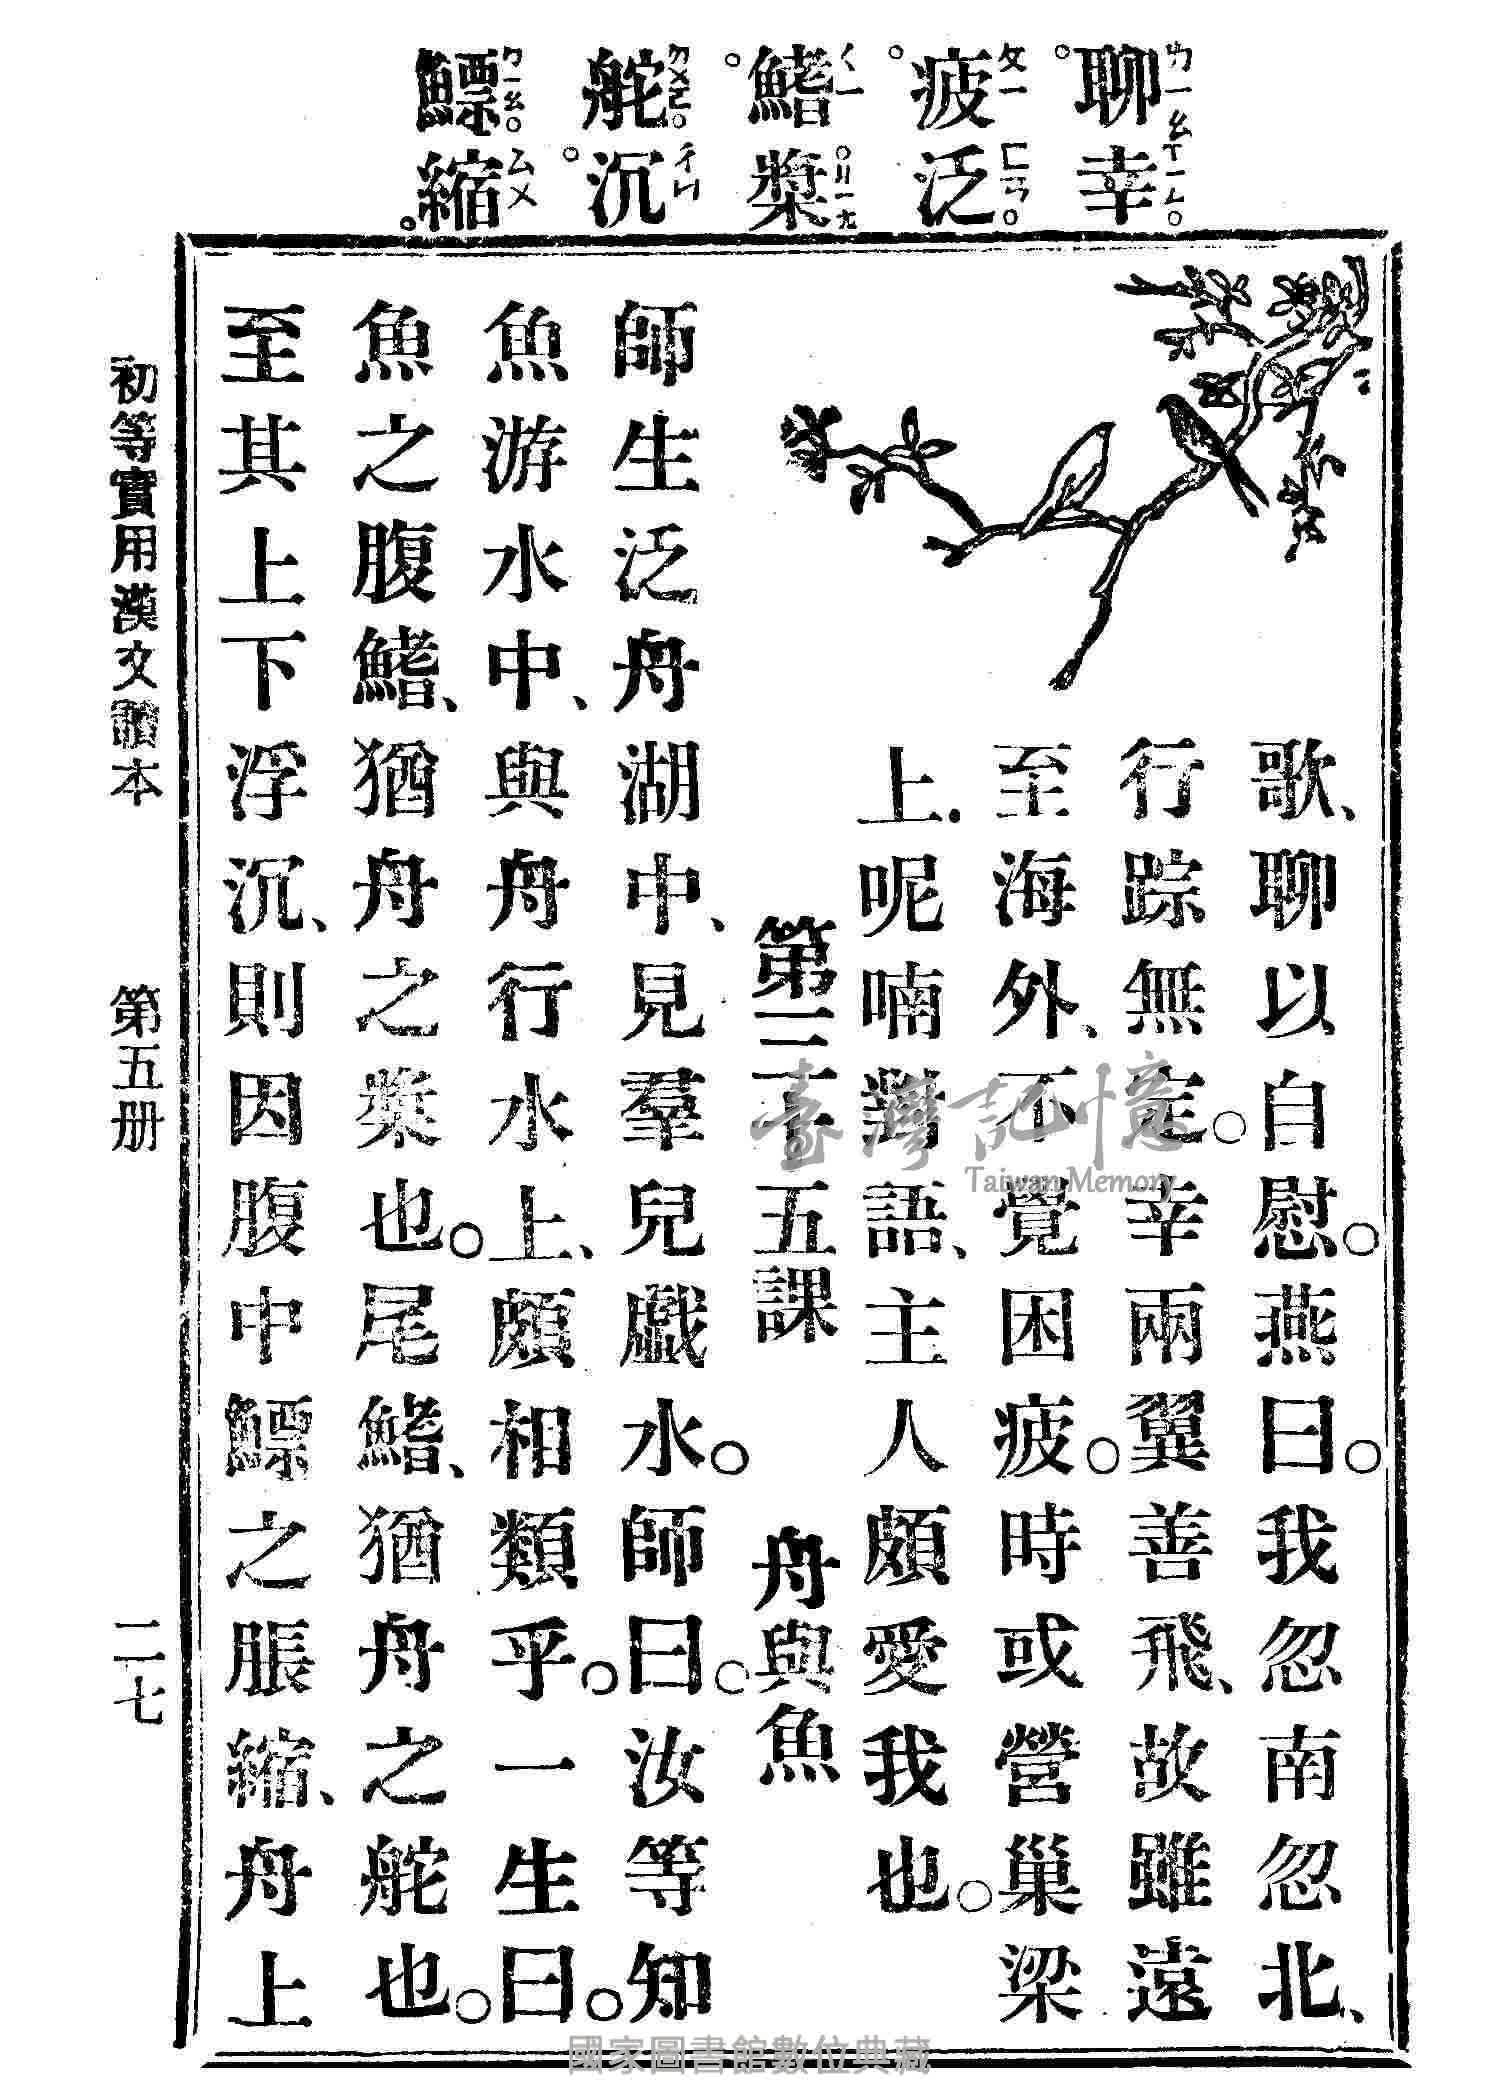 聊ㄌㄧㄠ。幸ㄒㄧㄥ。
疲ㄆㄧ。泛ㄈㄢ。
鰭ㄑㄧ。槳ㄐㄧㄤ。
舵ㄉㄨㄛ。沉ㄔㄣ。
鰾ㄅㄧㄠ。縮ㄙㄨ。
歌、聊以自慰。燕曰。我忽南忽北、
行踪無定。幸兩翼善飛、故雖遠
至海外、不覺困疲。時或營巢梁
上.呢喃對語、主人頗愛我也。
第三十五課 舟與魚
師生泛舟湖中、見羣兒戲水。師曰。汝等知
魚游水中、與舟行水上、頗相類乎。一生曰。
魚之腹鰭、猶舟之槳也。尾鰭、猶舟之舵也。
至其上下浮沉、則因腹中鰾之脹縮、舟上
初等實用漢文讀本 第五册 二七
臺灣記憶
Taiwan Memory
國家圖書館數位典藏